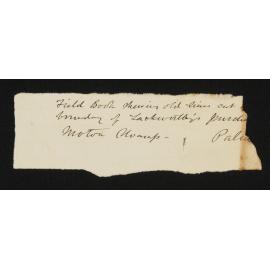 Field Book shewing old lines cut
boundary of Larkworthy's purch
Motoa Swamp - Palm